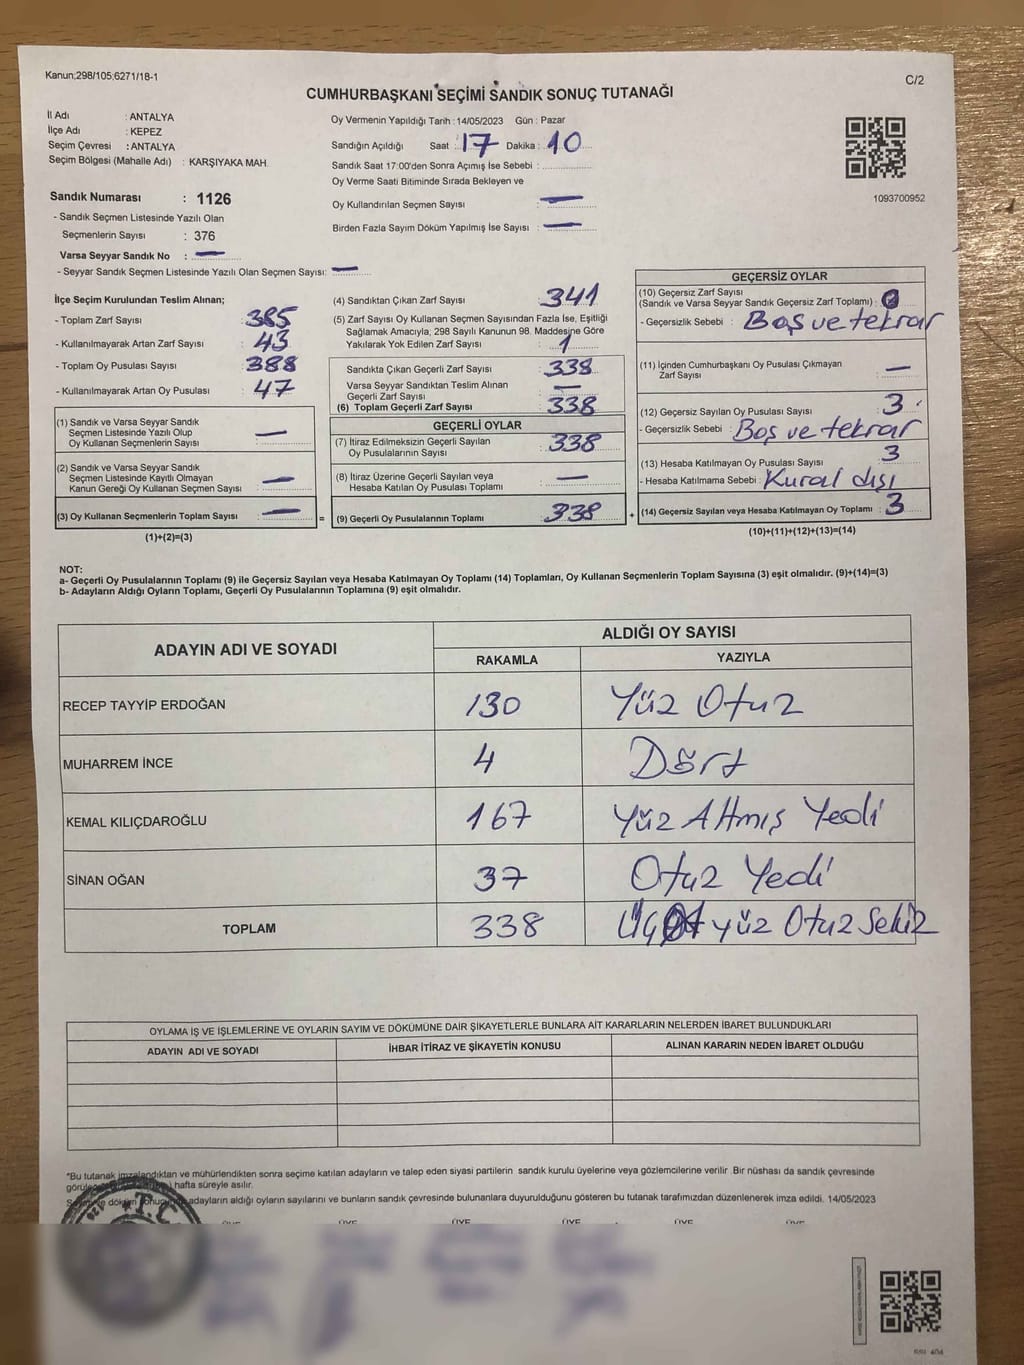 Kanun:298/105;6271/18-1
C/2
CUMHURBAŞKANI SEÇİMİ SANDIK SONUÇ TUTANAĞI
İl Adı : ANTALYA
İlçe Adı : KEPEZ
Seçim Çevresi : ANTALYA
Seçim Bölgesi (Mahalle Adı) : KARŞIYAKA MAH.
Sandık Numarası : 1126
- Sandık Seçmen Listesinde Yazılı Olan
Seçmenlerin Sayısı : 376
Varsa Seyyar Sandık No : —
- Seyyar Sandık Seçmen Listesinde Yazılı Olan Seçmen Sayısı: —
Oy Vermenin Yapıldığı Tarih : 14/05/2023 Gün : Pazar
Sandığın Açıldığı Saat : 17 Dakika : 10
Sandık Saat 17:00'den Sonra Açımış İse Sebebi :
Oy Verme Saati Bitiminde Sırada Bekleyen ve
Oy Kullandırılan Seçmen Sayısı : —
Birden Fazla Sayım Döküm Yapılmış İse Sayısı : —
1093700952
İlçe Seçim Kurulundan Teslim Alınan;
- Toplam Zarf Sayısı : 385
- Kullanılmayarak Artan Zarf Sayısı : 43
- Toplam Oy Pusulası Sayısı : 388
- Kullanılmayarak Artan Oy Pusulası : 47
(1) Sandık ve Varsa Seyyar Sandık
Seçmen Listesinde Yazılı Olup
Oy Kullanan Seçmenlerin Sayısı : —
(2) Sandık ve Varsa Seyyar Sandık
Seçmen Listesinde Kayıtlı Olmayan
Kanun Gereği Oy Kullanan Seçmen Sayısı : —
(3) Oy Kullanan Seçmenlerin Toplam Sayısı : —
(1)+(2)=(3)
(4) Sandıktan Çıkan Zarf Sayısı : 341
(5) Zarf Sayısı Oy Kullanan Seçmen Sayısından Fazla İse, Eşitliği
Sağlamak Amacıyla; 298 Sayılı Kanunun 98. Maddesine Göre
Yakılarak Yok Edilen Zarf Sayısı : 1
Sandıkta Çıkan Geçerli Zarf Sayısı : 338
Varsa Seyyar Sandıktan Teslim Alınan
Geçerli Zarf Sayısı : —
(6) Toplam Geçerli Zarf Sayısı : 338
GEÇERLİ OYLAR
(7) İtiraz Edilmeksizin Geçerli Sayılan
Oy Pusulalarının Sayısı : 338
(8) İtiraz Üzerine Geçerli Sayılan veya
Hesaba Katılan Oy Pusulası Toplamı : —
= (9) Geçerli Oy Pusulalarının Toplamı : 338 +
GEÇERSİZ OYLAR
(10) Geçersiz Zarf Sayısı
(Sandık ve Varsa Seyyar Sandık Geçersiz Zarf Toplamı) :
- Geçersizlik Sebebi : Boş ve tekrar
(11) İçinden Cumhurbaşkanı Oy Pusulası Çıkmayan
Zarf Sayısı : —
(12) Geçersiz Sayılan Oy Pusulası Sayısı : 3
- Geçersizlik Sebebi : Boş ve tekrar
(13) Hesaba Katılmayan Oy Pusulası Sayısı : 3
- Hesaba Katılmama Sebebi : Kural dışı
(14) Geçersiz Sayılan veya Hesaba Katılmayan Oy Toplamı : 3
(10)+(11)+(12)+(13)=(14)
NOT:
a- Geçerli Oy Pusulalarının Toplamı (9) ile Geçersiz Sayılan veya Hesaba Katılmayan Oy Toplamı (14) Toplamları, Oy Kullanan Seçmenlerin Toplam Sayısına (3) eşit olmalıdır. (9)+(14)=(3)
b- Adayların Aldığı Oyların Toplamı, Geçerli Oy Pusulalarının Toplamına (9) eşit olmalıdır.
ADAYIN ADI VE SOYADI
ALDIĞI OY SAYISI
RAKAMLA YAZIYLA
RECEP TAYYİP ERDOĞAN 130 Yüz Otuz
MUHARREM İNCE 4 Dört
KEMAL KILIÇDAROĞLU 167 Yüz Altmış Yedi
SİNAN OĞAN 37 Otuz Yedi
TOPLAM 338 Üç yüz Otuz Sekiz
OYLAMA İŞ VE İŞLEMLERİNE VE OYLARIN SAYIM VE DÖKÜMÜNE DAİR ŞİKAYETLERLE BUNLARA AİT KARARLARIN NELERDEN İBARET BULUNDUKLARI
ADAYIN ADI VE SOYADI İHBAR İTİRAZ VE ŞİKAYETİN KONUSU ALINAN KARARIN NEDEN İBARET OLDUĞU
*Bu tutanak imzalandıktan ve mühürlendikten sonra seçime katılan adayların ve talep eden siyasi partilerin sandık kurulu üyelerine veya gözlemcilerine verilir. Bir nüshası da sandık çevresinde
hafta süreyle asılır.
adayların aldığı oyların sayılarını ve bunların sandık çevresinde bulunanlara duyurulduğunu gösteren bu tutanak tarafımızdan düzenlenerek imza edildi. 14/05/2023
T.C.
ÜYE ÜYE ÜYE ÜYE ÜYE